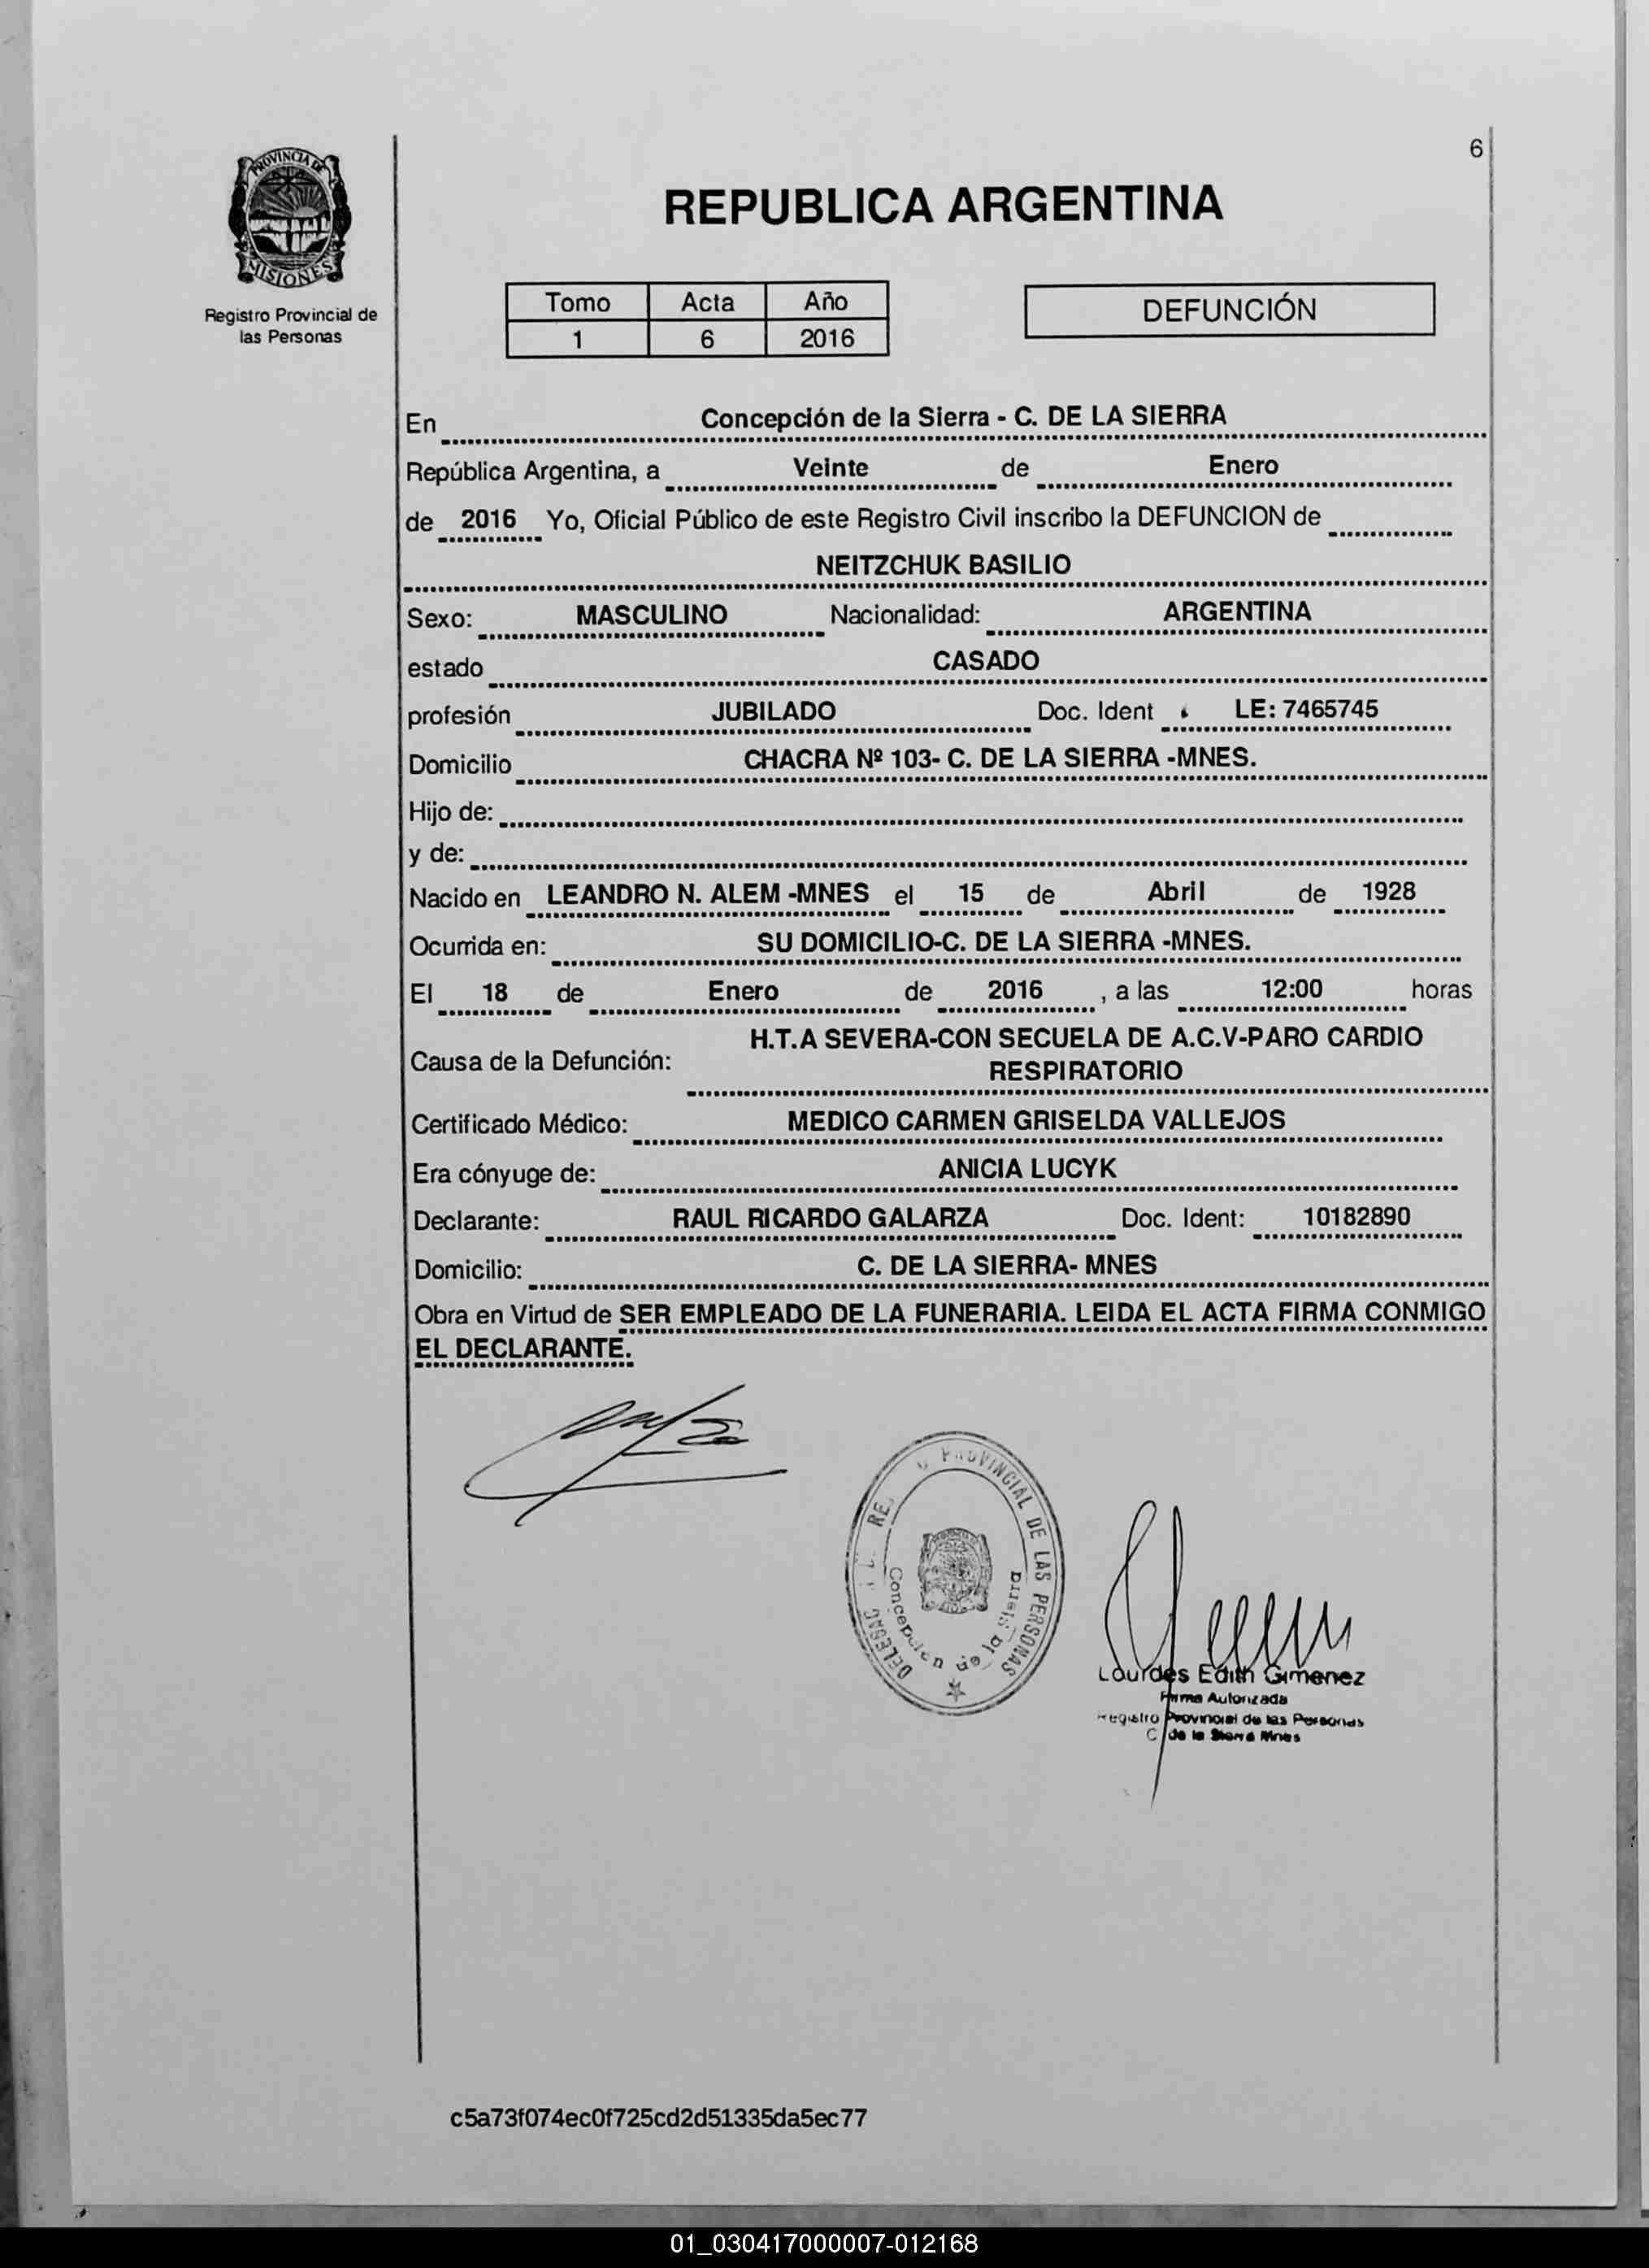 6
PROVINCIA DE
MISIONES
Registro Provincial de
las Personas
REPUBLICA ARGENTINA
Tomo Acta Año
1 6 2016
DEFUNCIÓN
En Concepción de la Sierra - C. DE LA SIERRA
República Argentina, a Veinte de Enero
de 2016 Yo, Oficial Público de este Registro Civil inscribo la DEFUNCION de
NEITZCHUK BASILIO
Sexo: MASCULINO Nacionalidad: ARGENTINA
estado CASADO
profesión JUBILADO Doc. Ident . LE: 7465745
Domicilio CHACRA Nº 103- C. DE LA SIERRA -MNES.
Hijo de:
y de:
Nacido en LEANDRO N. ALEM -MNES el 15 de Abril de 1928
Ocurrida en: SU DOMICILIO-C. DE LA SIERRA -MNES.
El 18 de Enero de 2016 , a las 12:00 horas
Causa de la Defunción: H.T.A SEVERA-CON SECUELA DE A.C.V-PARO CARDIO
RESPIRATORIO
Certificado Médico: MEDICO CARMEN GRISELDA VALLEJOS
Era cónyuge de: ANICIA LUCYK
Declarante: RAUL RICARDO GALARZA Doc. Ident: 10182890
Domicilio: C. DE LA SIERRA- MNES
Obra en Virtud de SER EMPLEADO DE LA FUNERARIA. LEIDA EL ACTA FIRMA CONMIGO
EL DECLARANTE.
PROVINCIAL DE LAS PERSONAS
Concepcion de la Sierra
Lourdes Edith Gimenez
Firma Autorizada
Registro Provincial de las Personas
C de la Sierra Mnes
c5a73f074ec0f725cd2d51335da5ec77
01_030417000007-012168